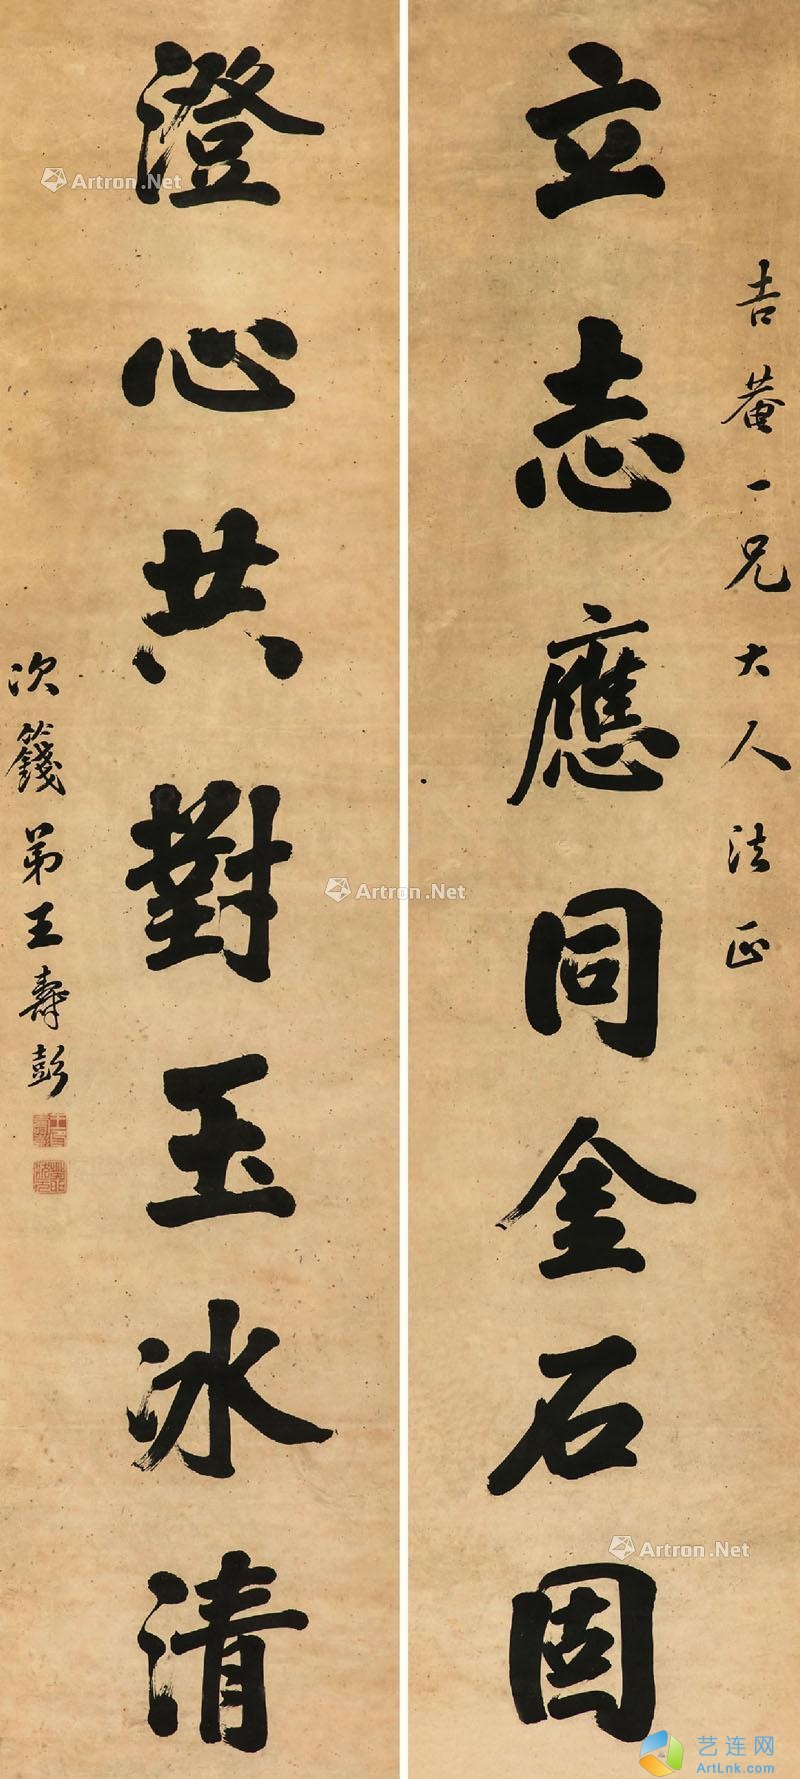 吉菴一兄大人法正
立志應同金石固
澄心共對玉冰清
次籛弟王壽彭
Artron.Net
Artron.Net
Artron.Net
艺连网
ArtLnk.com